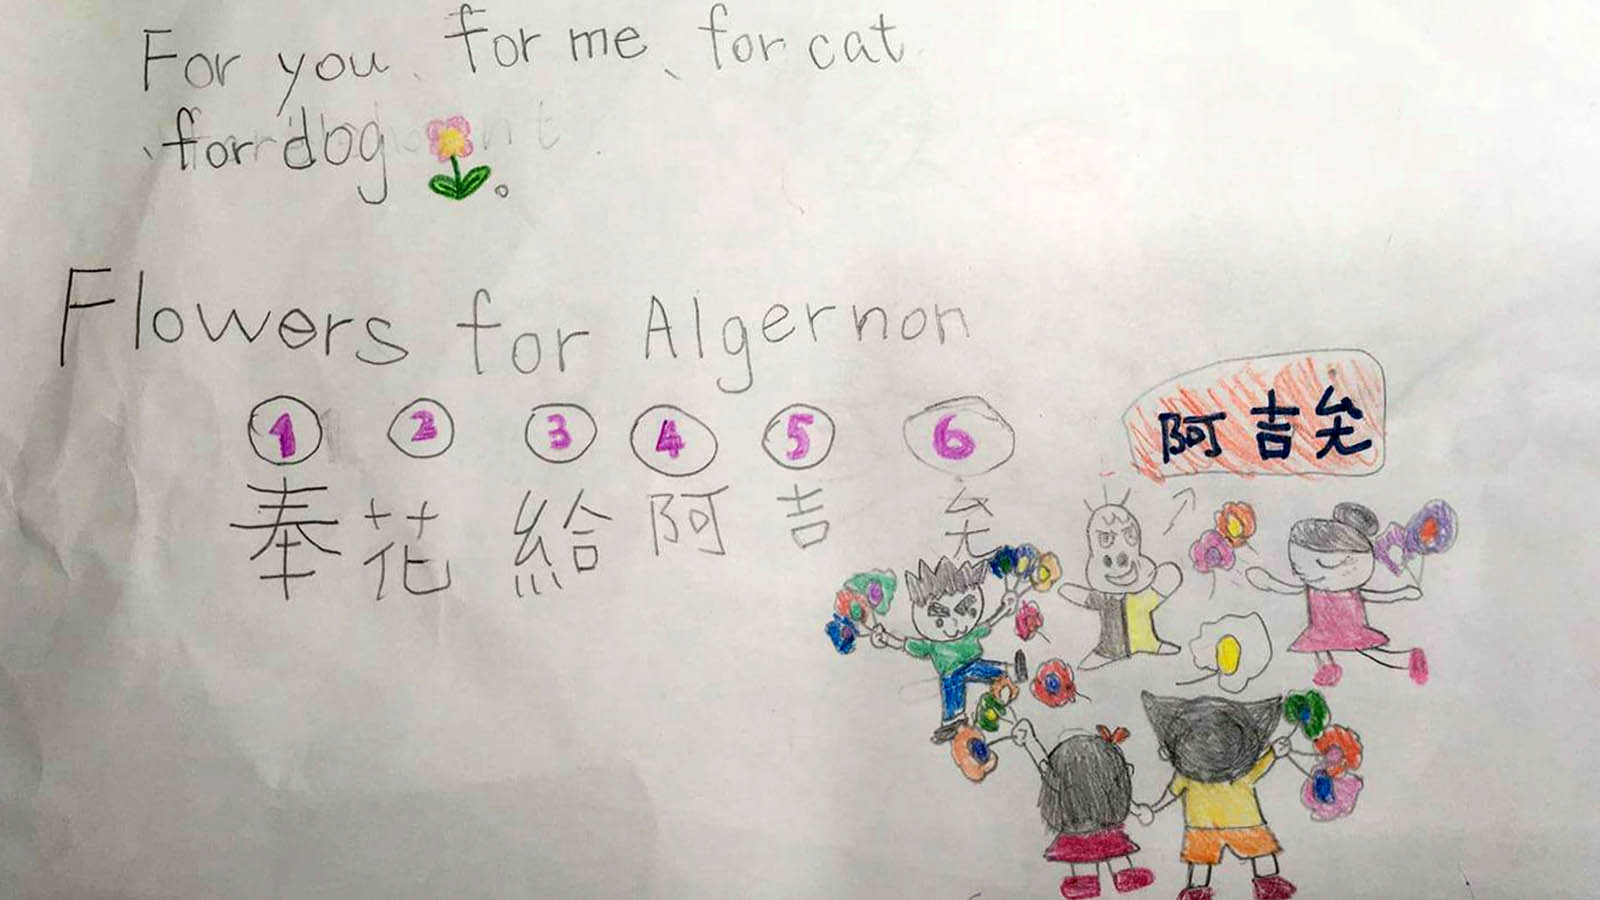 For you、for me、for cat
、for dog。
Flowers for Algernon
1 2 3 4 5 6
奉花給阿吉
阿吉